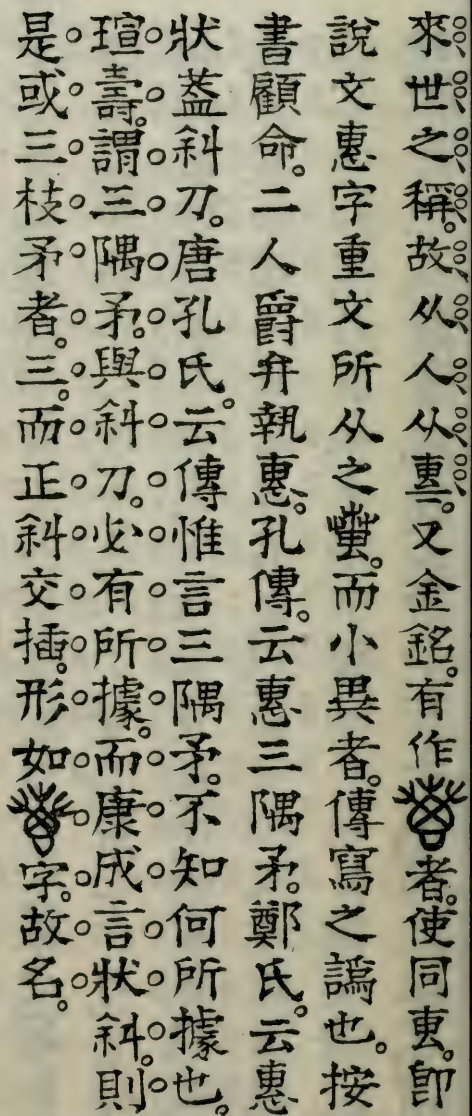 來世之稱。故从人从叀。又金銘。有作者。使同叀。即
說文惠字重文所从之。而小異者。傳寫之譌也。按
書顧命。二人爵弁執惠。孔傳。云惠三隅矛。鄭氏。云惠
狀葢斜刀。唐孔氏。云傳惟言三隅矛。不知何所據也。
瑄壽。謂三隅矛。與斜刀。必有所據。而康成言狀斜。則
是或三枝矛者。三。而正斜交插。形如字。故名。